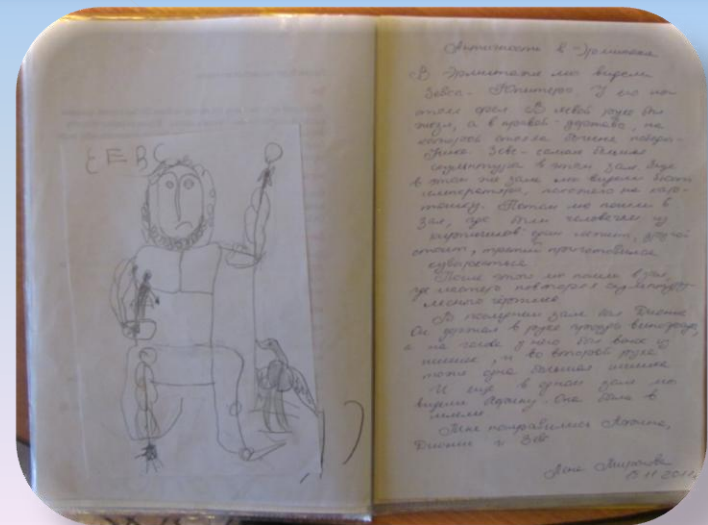 ZЕВС
Античность в Эрмитаже
В Эрмитаже мы видели
Зевса-Юпитера. У его но-
орёл. В левой руке был
жезл, а в правой - держава, на
которой стояла богиня победы-
Ника. Зевс - самая большая
скульптура в этом зале. Ещё
в этом же зале мы видели бюст
императора, похожего на кар-
тошку. Потом мы пошли в
зал, где были человечки из
один лежит, другой
стоит, третий приготовился
кувыркаться.
После этого мы пошли в зал,
где мастера повторяли скульптуру
лесного чертика.
В последнем зале был Дионис.
Он держал в руке гроздь винограда,
а на голове у него был венок из
шишек, и во второй руке
тоже одна большая шишка.
И ещё в одном зале мы
видели Афину. Она была в
шлеме.
Мне понравились Афина,
Дионис и Зевс.
13.11.2011г.